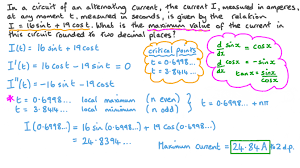 In a circuit of an alternating current, the current I, measured in amperes,
at any moment t, measured in seconds, is given by the relation
I = 16 sin t + 19 cos t. What is the maximum value of the current in
this circuit rounded to two decimal places?
I(t) = 16 sin t + 19 cos t
I'(t) = 16 cos t - 19 sin t = 0
I''(t) = -16 sin t - 19 cos t
critical points
t = 0.6998...
t = 3.8414...
d/dx sin x = cos x
d/dx cos x = - sin x
tan x = sin x / cos x
* t = 0.6998... local maximum (n even)
t = 3.8414... local minimum (n odd)
t = 0.6998... + nπ
I(0.6998...) = 16 sin(0.6998...) + 19 cos(0.6998...)
= 24.8394...
Maximum current = 24.84 A